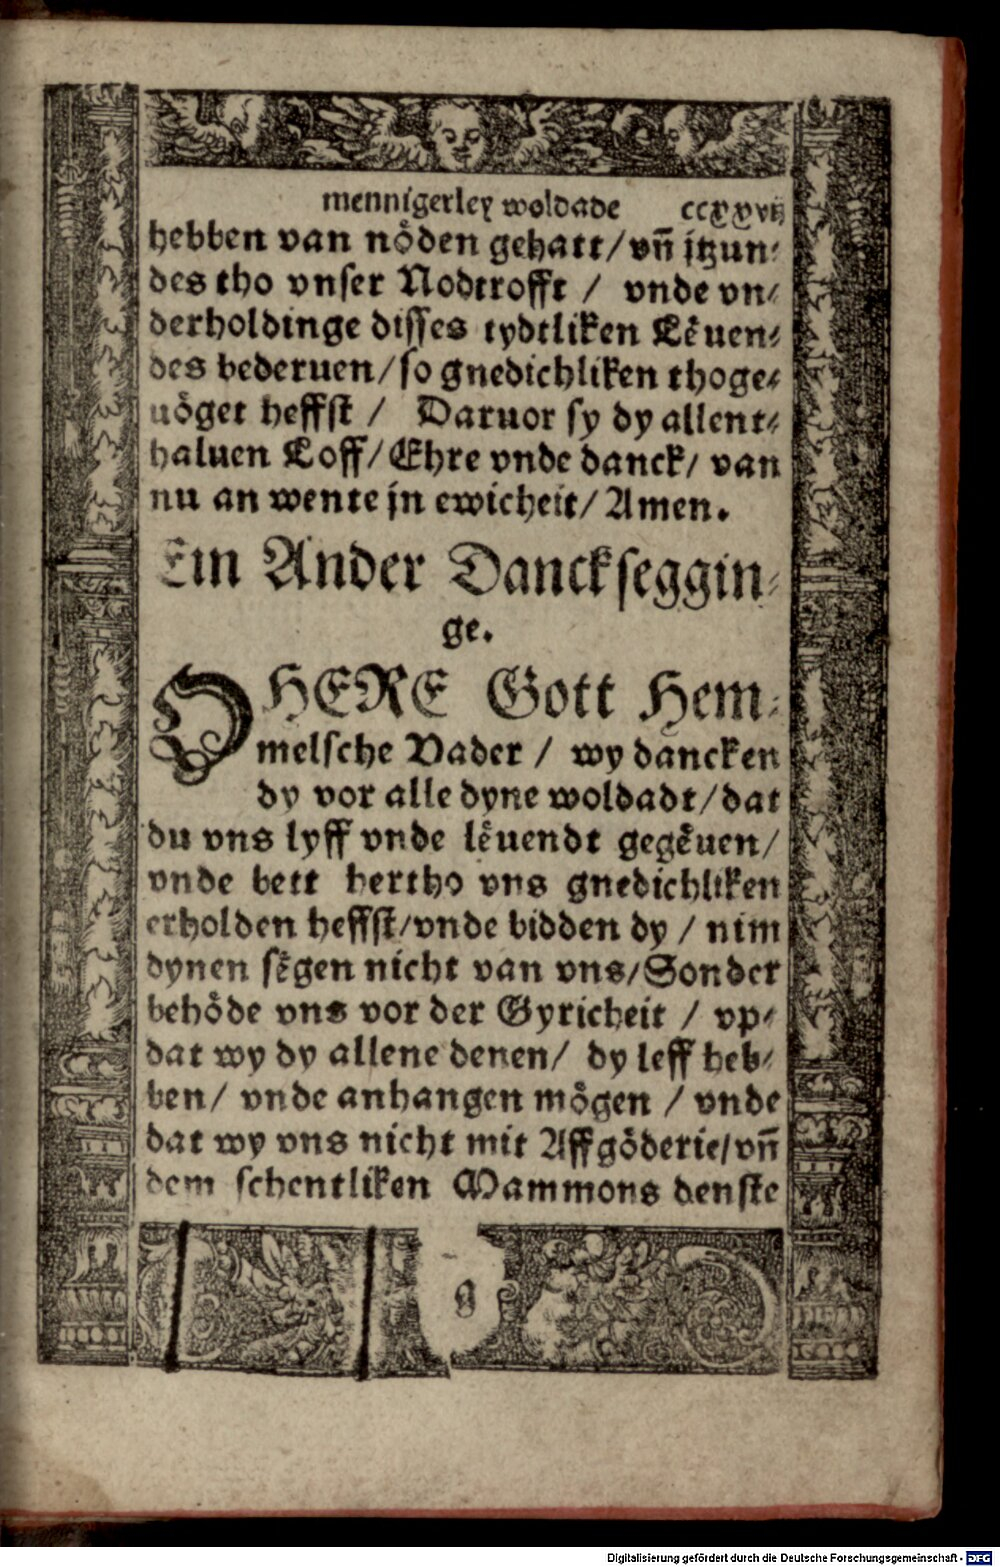 mennigerley woldade ccxxvij
hebben van nöden gehatt/ vn̄ jtzun⸗
des tho vnser Nodtrofft / vnde vn⸗
derholdinge disses tydtliken Lēuen⸗
des bederuen/ so gnedichliken thoge⸗
uöget heffst / Daruor sy dy allent⸗
haluen Loff/ Ehre vnde danck/ van
nu an wente jn ewicheit/ Amen.
Ein Ander Danckseggin⸗
ge.
O HERE Gott Hem⸗
melsche Vader / wy dancken
dy vor alle dyne woldadt/ dat
du vns lyff vnde lēuendt gegēuen/
vnde bett hertho vns gnedichliken
erholden heffst/ vnde bidden dy / nim
dynen sēgen nicht van vns/ Sonder
behöde vns vor der Gyricheit / vp⸗
dat wy dy allene denen/ dy leff heb⸗
ben/ vnde anhangen mögen / vnde
dat wy vns nicht mit Affgöderie/ vn̄
dem schentliken Mammons denste
g
Digitalisierung gefördert durch die Deutsche Forschungsgemeinschaft - DFG